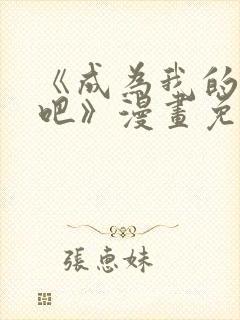 《成為我的
吧》漫畫免
張惠妹